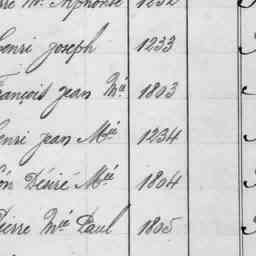 Mie Alphonse 1232
Henri Joseph 1233
François Jean Mie 1803
Henri Jean Mie 1234
Désiré Mie 1804
Pierre Mie Paul 1805